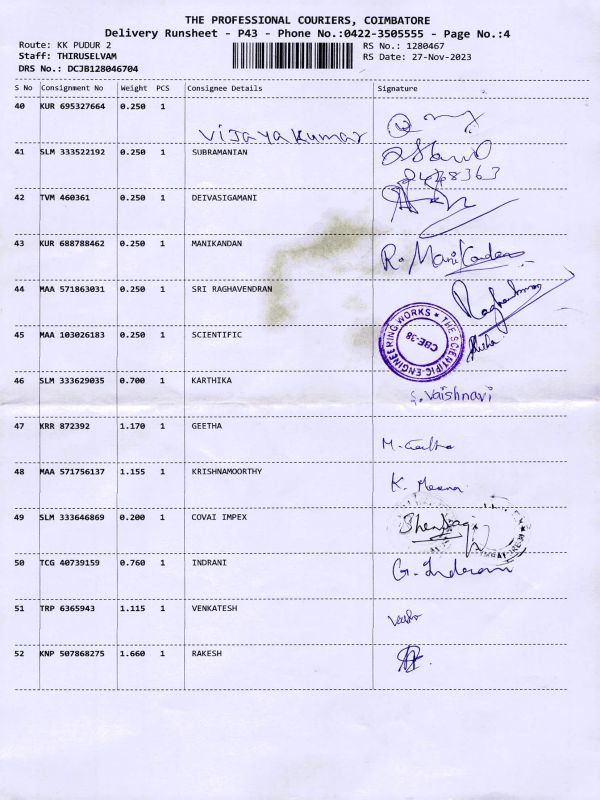 THE PROFESSIONAL COURIERS, COIMBATORE
Delivery Runsheet - P43 - Phone No.:0422-3505555 - Page No.:4
Route: KK PUDUR 2 RS No.: 1280467
Staff: THIRUSELVAM RS Date: 27-Nov-2023
DRS No.: DCJB128046704
S No Consignment No Weight PCS Consignee Details Signature
40 KUR 695327664 0.250 1
Vijayakumar
41 SLM 333522192 0.250 1 SUBRAMANIAN
42 TVM 460361 0.250 1 DEIVASIGAMANI
43 KUR 688788462 0.250 1 MANIKANDAN
R. Manikandan
44 MAA 571863031 0.250 1 SRI RAGHAVENDRAN
45 MAA 103026183 0.250 1 SCIENTIFIC
THE SCIENTIFIC ENGINEERING WORKS
CBE-38
46 SLM 333629035 0.700 1 KARTHIKA
S. Vaishnavi
47 KRR 872392 1.170 1 GEETHA
M. Geetha
48 MAA 571756137 1.155 1 KRISHNAMOORTHY
K. Meena
49 SLM 333646869 0.200 1 COVAI IMPEX
50 TCG 40739159 0.760 1 INDRANI
G. Indrani
51 TRP 6365943 1.115 1 VENKATESH
52 KNP 507868275 1.660 1 RAKESH